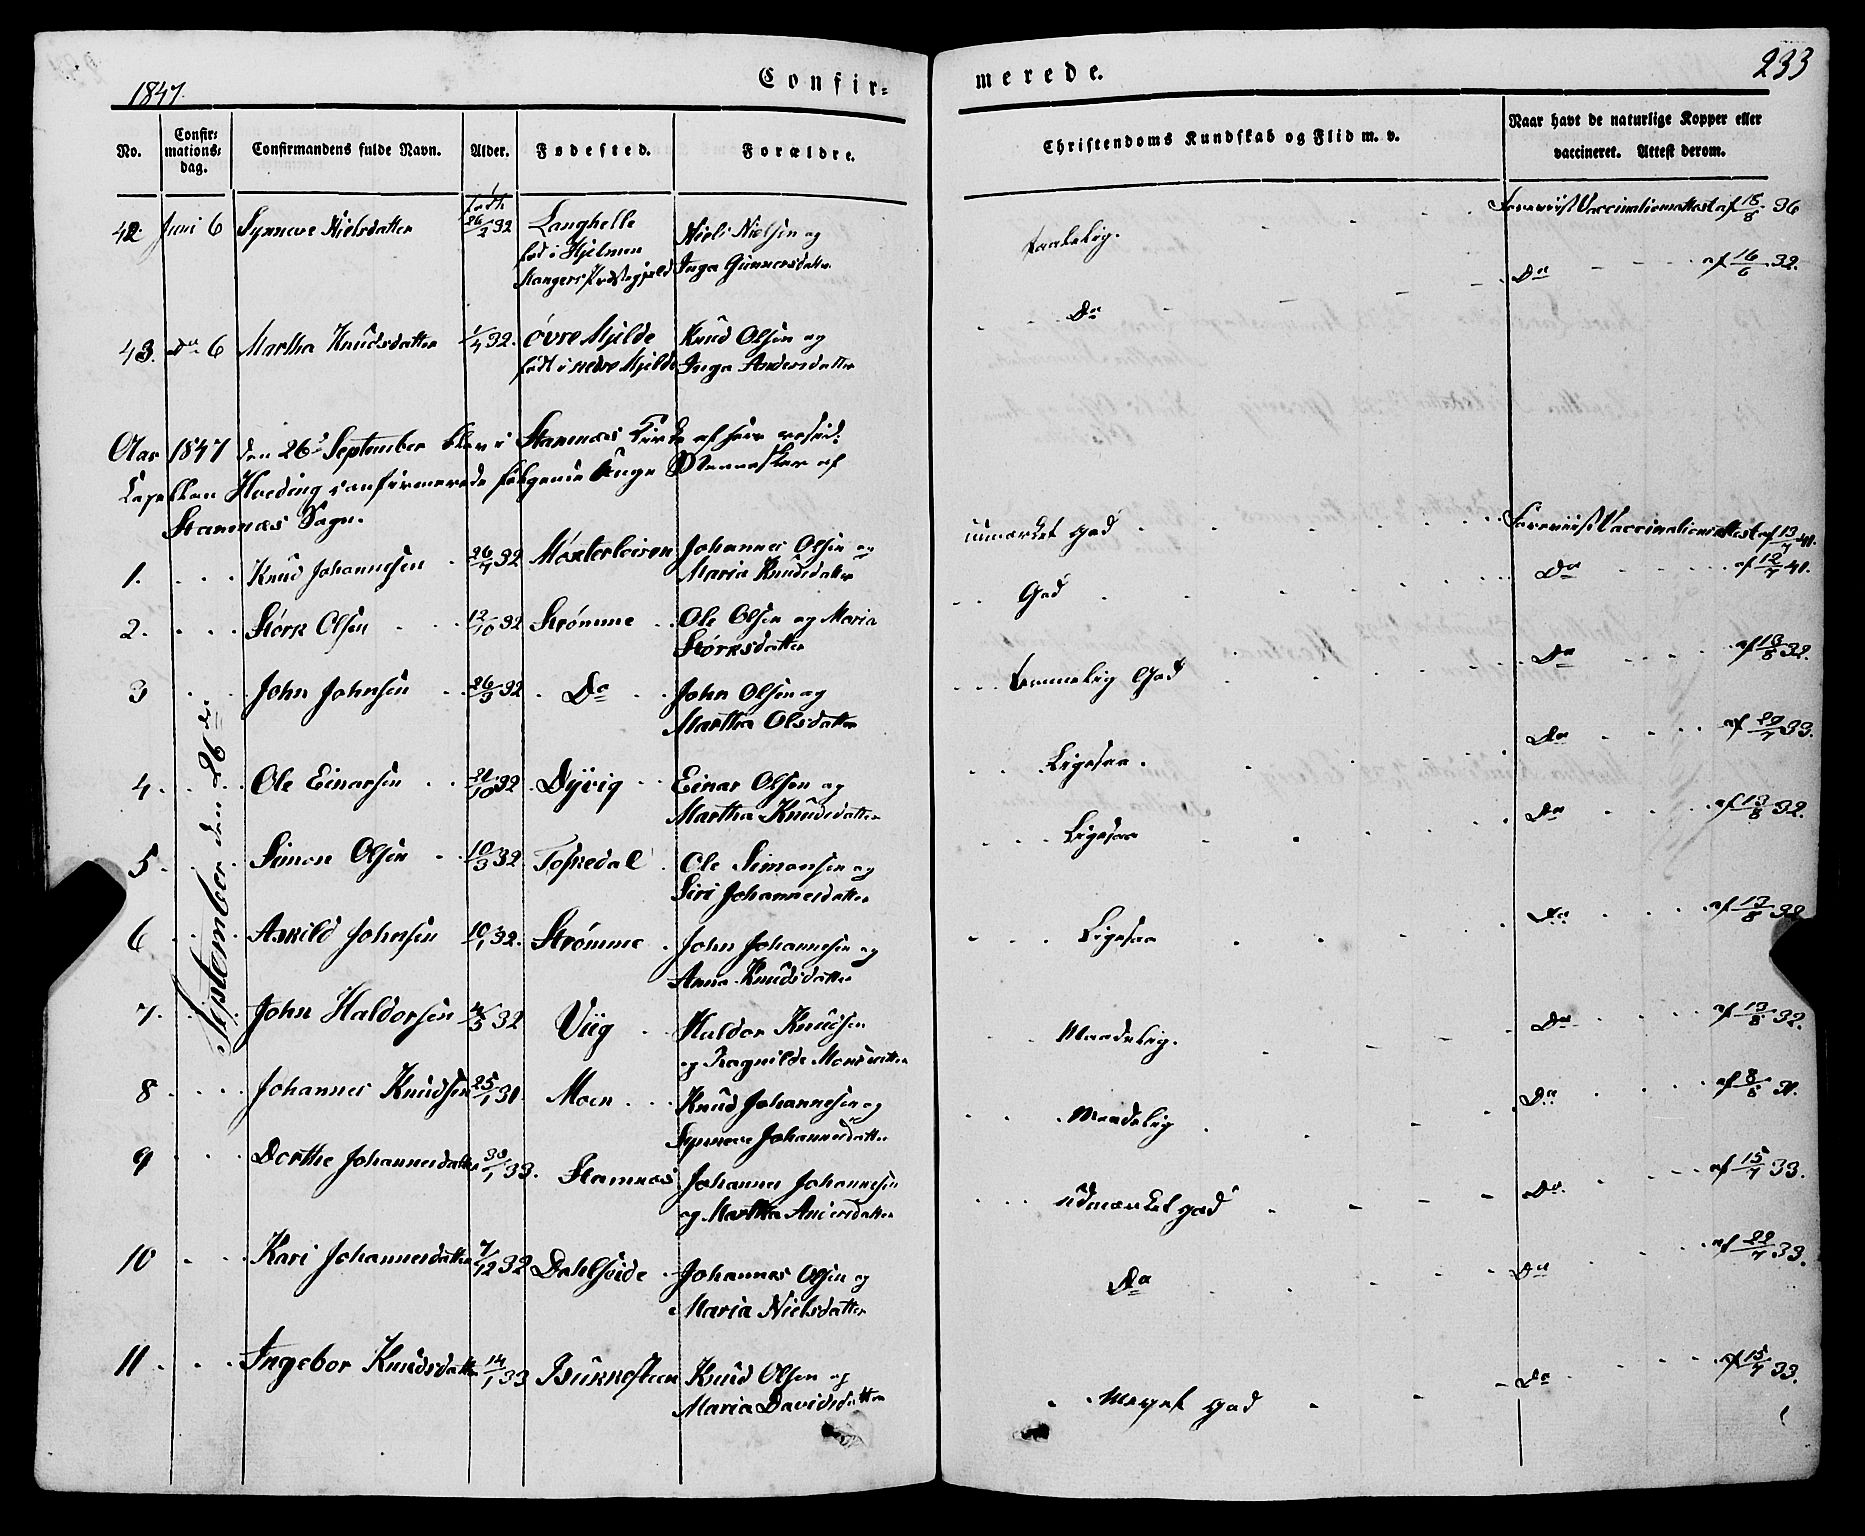 1847.
Confir-
merede.
233
No.
Confir-
mations-
dag.
Confirmandens fulde Navn.
Alder.
Fødested.
Forældre.
Christendoms Kundskab og Flid m. v.
Naar havt de naturlige Kopper eller
vaccineret. Attest derom.
42 Juni 6 Synneve Nielsdatter født 26/2 32 Langhelle Niels Nielsen og taalelig. Foreviist Vaccinationsattest af 18/8 36
fød i Hjelmen Inga Gunnarsdatter
Mangers Præstegjeld
43. Do 6 Martha Knudsdatter 1/4 32. øvre Mjelde Knud Olsen og Do Do af 16/6 32.
født i nedre Mjelde Inga Andersdatter
Aar 1847 den 26de September blev i Stamnæs Kirke af Herr resid:
Capellan Hveding confirmerede følgende Unge Mennesker af
Stamnæs Sogn.
September den 26de
1. Knud Johannesen 26/7 32 Møsterleiren Johannes Olsen og udmærket god Foreviist Vaccinationsattest af 13/7 41.
Maria Knudsdatter
2. Størk Olsen 12/10 32 Strømme Ole Olsen og Maria God Do af 12/7 41.
Størksdatter
3 John Johnsen 26/3 32 Do John Olsen og temmelig God Do af 13/8 32.
Martha Olsdatter
4. Ole Einarsen 21/10 32 Dyvig Einar Olsen og Ligesaa. Do af 20/7 33.
Martha Knudsdatter
5. Simon Olsen 10/3 32 Toskedal Ole Simonsen og Ligesaa Do af 13/8 32.
Siri Johannesdatter
6 Askild Johnsen 10/1 32. Strømme John Johannesen og Ligesaa Do af 13/8 32
Anna Knudsdatter
7. John Haldorsen 4/5 32 Viig Haldor Knudsen Maadelig. Do af 13/8 32.
og Ragnilde Monsdatter
8 Johannes Knudsen 25/1 31. Moen Knud Johannesen og Maadelig Do af 8/8 31.
Synneve Johannesdatter
9 Dorthe Johannesdatter 30/1 33. Stamnæs Johannes Johannesen udmærket god Do. af 15/7 33.
og Martha Andersdatter
10 Kari Johannesdatter 7/12 32 Dahlseide Johannes Olsen og Do Do af 22/7 33.
Maria Nielsdatter
11. Ingebor Knudsdatter 14/1 33 Bukkesteen Knud Olsen og Meget god Do af 15/7 33.
Maria Davidsdatter